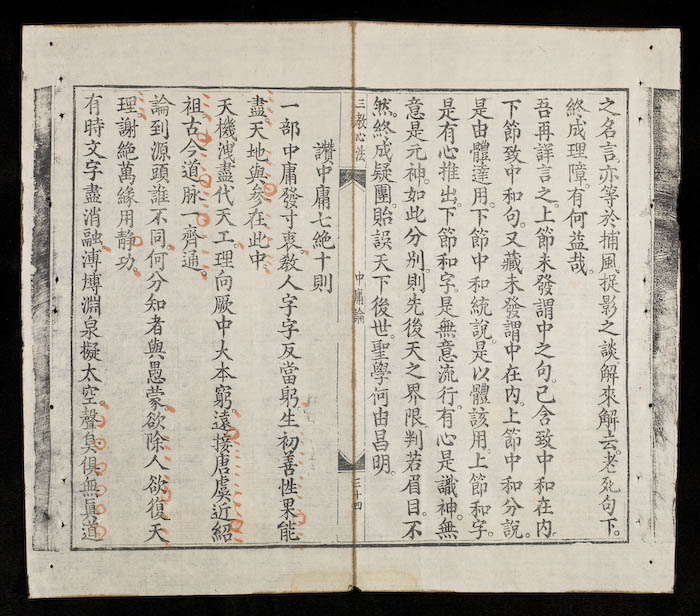 之名言。亦等於捕風捉影之談。解來解去。老死句下。
終成理障。有何益哉。
吾再詳言之。上節未發謂中之句。已含致中和在內。
下節致中和句。又藏未發謂中在內。上節中和分說。
是由體達用。下節中和統說。是以體該用。上節和字。
是有心推出。下節和字。是無意流行。有心是識神。無
意是元神。如此分別。則先後天之界限。判若眉目。不
然。終成疑團。貽誤天下後世。聖學何由昌明。
三教心法
中庸論
三十四
讚中庸七絕十則
一部中庸發寸衷。教人字字反當躬。生初善性果能
盡。天地與參在此中。
天機洩盡代天工。理向厥中大本窮。遠接唐虞近紹
祖。古今道脉一齊通。
論到源頭誰不同。何分知者與愚蒙。欲除人欲復天
理。謝絕萬緣用靜功。
有時文字盡消融。溥博淵泉擬太空。聲臭俱無眞道